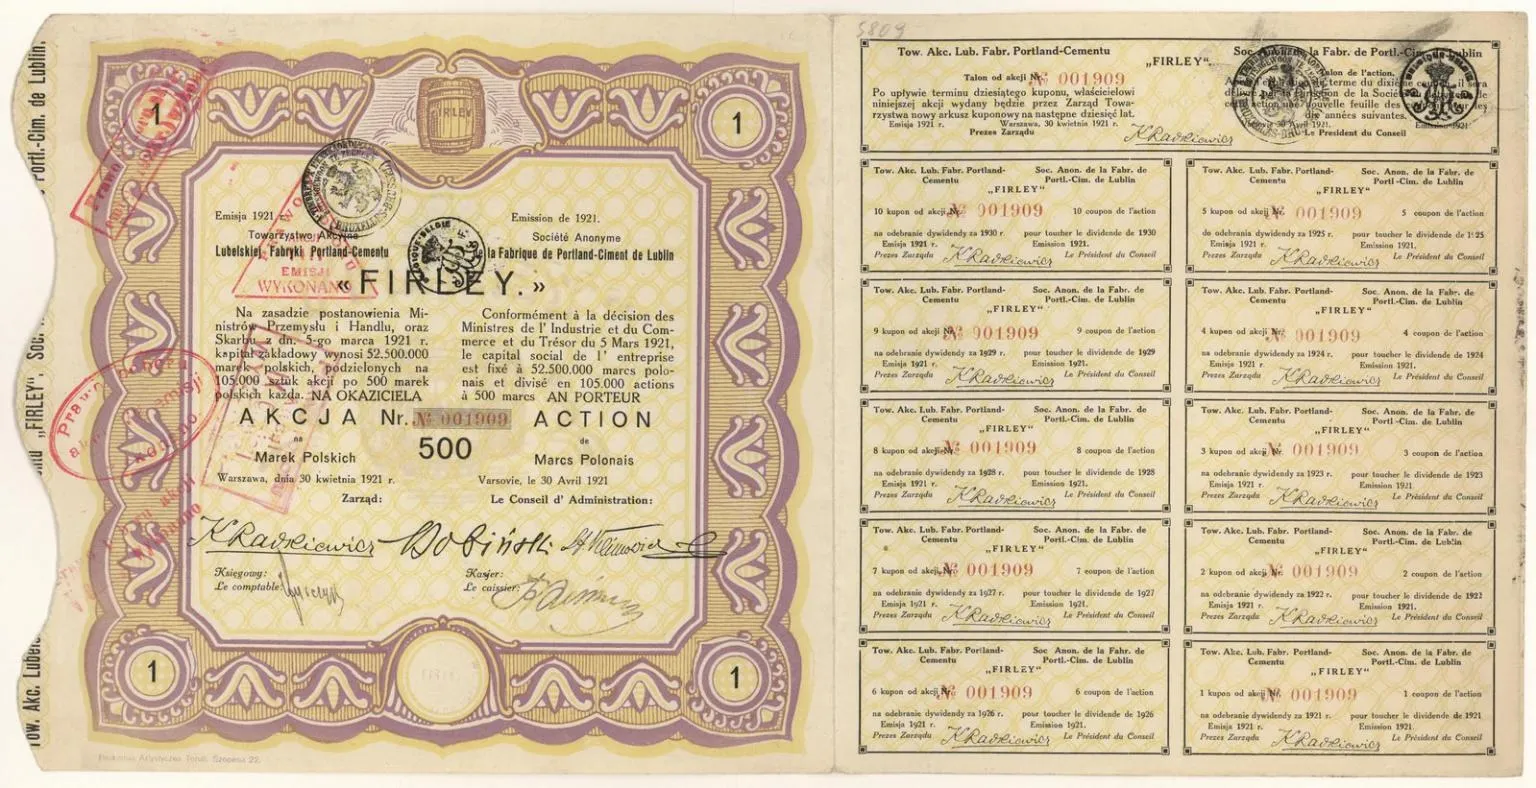 1
1
FIRLEY
Emisja 1921 r.
Towarzystwo Akcyjne
Lubelskiej Fabryki Portland-Cementu
Emission de 1921.
Société Anonyme
la Fabrique de Portland-Ciment de Lublin
«FIRLEY.»
Na zasadzie postanowienia Mi-
nistrów Przemysłu i Handlu, oraz
Skarbu z dn. 5-go marca 1921 r.
kapitał zakładowy wynosi 52.500.000
marek polskich, podzielonych na
105.000 sztuk akcji po 500 marek
polskich każda. NA OKAZICIELA
Conformément à la décision des
Ministres de l' Industrie et du Com-
merce et du Trésor du 5 Mars 1921,
le capital social de l' entreprise
est fixé à 52.500.000 marcs polo-
nais et divisé en 105.000 actions
à 500 marcs AN PORTEUR
AKCJA Nr. № 001909 ACTION
na 500 de
Marek Polskich Marcs Polonais
Warszawa, dnia 30 kwietnia 1921 r. Varsovie, le 30 Avril 1921
Zarząd: Le Conseil d' Administration:
KRadkiewicz
Księgowy:
Le comptable:
Kasjer:
Le caissier:
1
1
EMISJI
WYKONANO
5809
Tow. Akc. Lub. Fabr. Portland-Cementu
„FIRLEY”.
Talon od akcji Nr. № 001909
Po upływie terminu dziesiątego kuponu, właścicielowi
niniejszej akcji wydany będzie przez Zarząd Towa-
rzystwa nowy arkusz kuponowy na następne dziesięć lat.
Emisja 1921 r. Warszawa, 30 kwietnia 1921 r.
Prezes Zarządu KRadkiewicz
Talon de l'action.
des années suivantes.
Le Président du Conseil
Tow. Akc. Lub. Fabr. Portland-
Cementu
Soc. Anon. de la Fabr. de
Portl.-Cim. de Lublin
„FIRLEY“
10 kupon od akcji № 001909 10 coupon de l'action
na odebranie dywidendy za 1930 r. pour toucher le dividende de 1930
Emisja 1921 r. Emission 1921.
Prezes Zarządu KRadkiewicz Le Président du Conseil
Tow. Akc. Lub. Fabr. Portland-
Cementu
Soc. Anon. de la Fabr. de
Portl.-Cim. de Lublin
„FIRLEY“
5 kupon od akcji № 001909 5 coupon de l'action
do odebrania dywidendy za 1925 r. pour toucher le dividende de 1925
Emisja 1921 r. Emission 1921.
Prezes Zarządu KRadkiewicz Le Président du Conseil
Tow. Akc. Lub. Fabr. Portland-
Cementu
Soc. Anon. de la Fabr. de
Portl.-Cim. de Lublin
„FIRLEY“
9 kupon od akcji № 001909 9 coupon de l'action
na odebranie dywidendy za 1929 r. pour toucher le dividende de 1929
Emisja 1921 r. Emission 1921.
Prezes Zarządu KRadkiewicz Le Président du Conseil
Tow. Akc. Lub. Fabr. Portland-
Cementu
Soc. Anon. de la Fabr. de
Portl.-Cim. de Lublin
„FIRLEY“
4 kupon od akcji № 001909 4 coupon de l'action
na odebranie dywidendy za 1924 r. pour toucher le dividende de 1924
Emisja 1921 r. Emission 1921.
Prezes Zarządu KRadkiewicz Le Président du Conseil
Tow. Akc. Lub. Fabr. Portland-
Cementu
Soc. Anon. de la Fabr. de
Portl.-Cim. de Lublin
„FIRLEY“
8 kupon od akcji № 001909 8 coupon de l'action
na odebranie dywidendy za 1928 r. pour toucher le dividende de 1928
Emisja 1921 r. Emission 1921.
Prezes Zarządu KRadkiewicz Le Président du Conseil
Tow. Akc. Lub. Fabr. Portland-
Cementu
Soc. Anon. de la Fabr. de
Portl.-Cim. de Lublin
„FIRLEY“
3 kupon od akcji № 001909 3 coupon de l'action
na odebranie dywidendy za 1923 r. pour toucher le dividende de 1923
Emisja 1921 r. Emission 1921.
Prezes Zarządu KRadkiewicz Le Président du Conseil
Tow. Akc. Lub. Fabr. Portland-
Cementu
Soc. Anon. de la Fabr. de
Portl.-Cim. de Lublin
„FIRLEY“
7 kupon od akcji № 001909 7 coupon de l'action
na odebranie dywidendy za 1927 r. pour toucher le dividende de 1927
Emisja 1921 r. Emission 1921.
Prezes Zarządu KRadkiewicz Le Président du Conseil
Tow. Akc. Lub. Fabr. Portland-
Cementu
Soc. Anon. de la Fabr. de
Portl.-Cim. de Lublin
„FIRLEY“
2 kupon od akcji № 001909 2 coupon de l'action
na odebranie dywidendy za 1922 r. pour toucher le dividende de 1922
Emisja 1921 r. Emission 1921.
Prezes Zarządu KRadkiewicz Le Président du Conseil
Tow. Akc. Lub. Fabr. Portland-
Cementu
Soc. Anon. de la Fabr. de
Portl.-Cim. de Lublin
„FIRLEY“
6 kupon od akcji № 001909 6 coupon de l'action
na odebranie dywidendy za 1926 r. pour toucher le dividende de 1926
Emisja 1921 r. Emission 1921.
Prezes Zarządu KRadkiewicz Le Président du Conseil
Tow. Akc. Lub. Fabr. Portland-
Cementu
Soc. Anon. de la Fabr. de
Portl.-Cim. de Lublin
„FIRLEY“
1 kupon od akcji № 001909 1 coupon de l'action
na odebranie dywidendy za 1921 r. pour toucher le dividende de 1921
Emisja 1921 r. Emission 1921.
Prezes Zarządu KRadkiewicz Le Président du Conseil